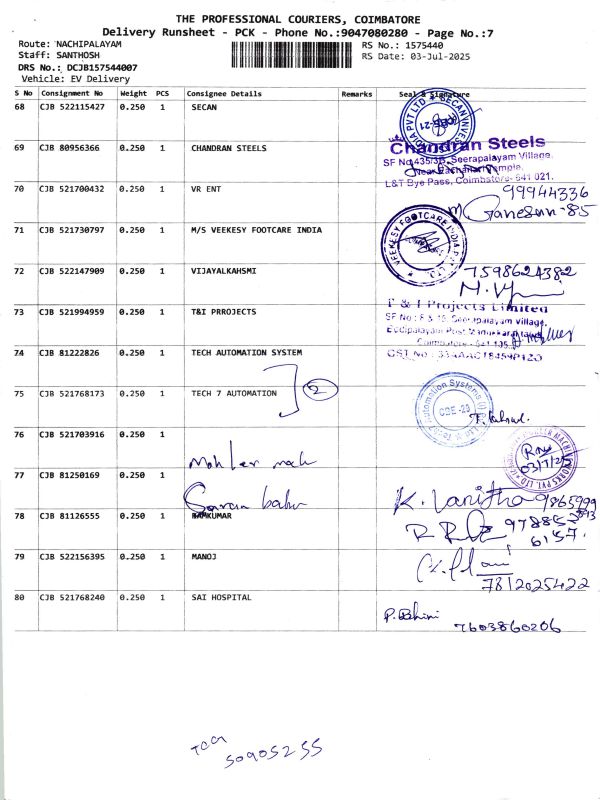 THE PROFESSIONAL COURIERS, COIMBATORE
Delivery Runsheet - PCK - Phone No.:9047080280 - Page No.:7
Route: NACHIPALAYAM
Staff: SANTHOSH
DRS No.: DCJB157544007
Vehicle: EV Delivery
RS No.: 1575440
RS Date: 03-Jul-2025
S No Consignment No Weight PCS Consignee Details Remarks Seal & Signature
68 CJB 522115427 0.250 1 SECAN
69 CJB 80956366 0.250 1 CHANDRAN STEELS
Chandran Steels
SF No.435/3B, Seerapalayam Village,
L&T Bye Pass, Coimbatore- 641 021.
70 CJB 521700432 0.250 1 VR ENT
99944336
Ganesan -85
71 CJB 521730797 0.250 1 M/S VEEKESY FOOTCARE INDIA
VEEKESY FOOTCARE INDIA PVT LTD
72 CJB 522147909 0.250 1 VIJAYALKAHSMI
7598624382
73 CJB 521994959 0.250 1 T&I PRROJECTS
T & I Projects Limited
Seerapalayam Village,
74 CJB 81222826 0.250 1 TECH AUTOMATION SYSTEM
75 CJB 521768173 0.250 1 TECH 7 AUTOMATION
2
Automation Systems
CBE-23
76 CJB 521703916 0.250 1
03/7/25
77 CJB 81250169 0.250 1
K. Vanitha
78 CJB 81126555 0.250 1 RAMKUMAR
79 CJB 522156395 0.250 1 MANOJ
7812025422
80 CJB 521768240 0.250 1 SAI HOSPITAL
7603860206
50905255